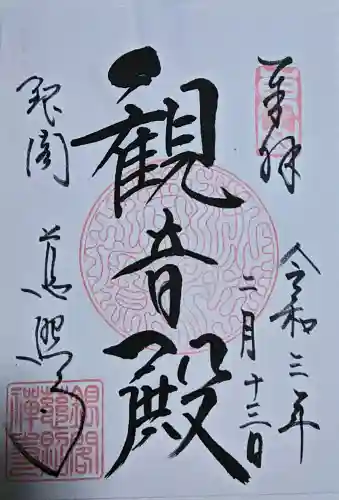 奉拝
令和三年
二月十三日
観音殿
銀閣
慈照寺